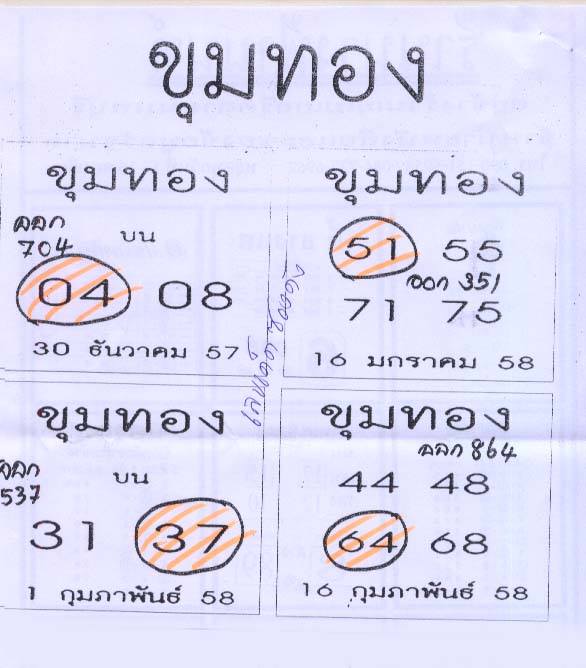 ขุมทอง
ขุมทอง
ออก
704
บน
04 08
30 ธันวาคม 57
ขุมทอง
51 55
ออก 351
71 75
16 มกราคม 58
ขุมทอง
ออก
537
บน
31 37
1 กุมภาพันธ์ 58
ขุมทอง
ออก 864
44 48
64 68
16 กุมภาพันธ์ 58